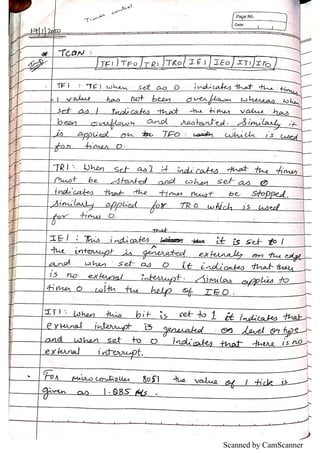 Timer control
Page No.
Date
19/1/2020
* TCON :
TF1 | TF0 | TR1 | TR0 | IE1 | IE0 | IT1 | IT0
TF1 : TF1 when set as 0 indicates that the timer
1 value has not been overflown whereas when
set as 1 Indicates that the timer value has
been overflown and restarted. Similarly it
is applied on TF0 which is used
for timer 0.
TR1: When set as 1 it indicates that the timer
must be started and when set as 0
indicates that the timer must be stopped.
Similarly applied for TR0 which is used
for timer 0
IE1 : This indicates that it is set to 1
the interrupt is generated externally on the edge
and when set as 0 it indicates that there
is no external interrupt. Similar applies to
timer 0 with the help of IE0.
IT1: When this bit is set to 1 it Indicates that
external interrupt is generated on level on type
and when set to 0 Indicates that there is no
external interrupt.
• For microcontroller 8051 the value of 1 tick is
given as 1.085 μs.
Scanned by CamScanner